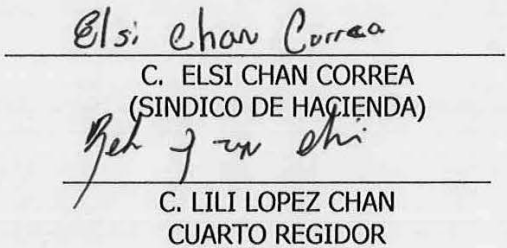 Elsi Chan Correa
C. ELSI CHAN CORREA
(SINDICO DE HACIENDA)
C. LILI LOPEZ CHAN
CUARTO REGIDOR